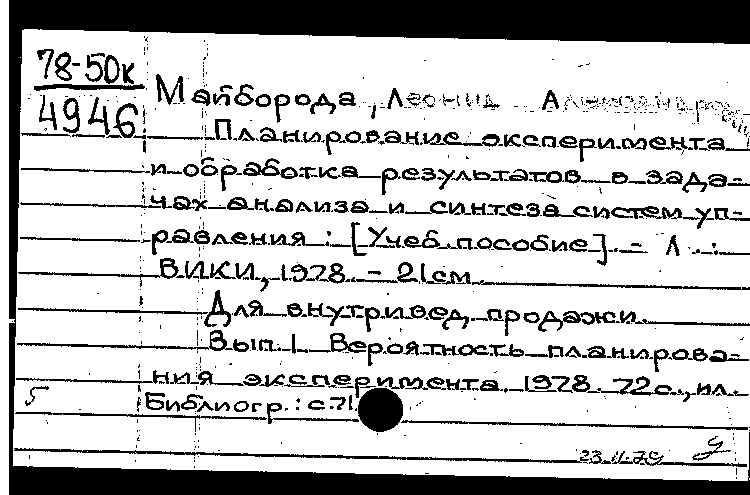 78-50к
4946
Майборода, Леонид Александрович
Планирование эксперимента
и обработка результатов в зада-
чах анализа и синтеза систем уп-
равления: [Учеб. пособие]. - Л.:
ВИКИ, 1978. - 21 см.
Для внутривед. продажи.
Вып. 1 Вероятность планирова-
ния эксперимента. 1978. 72 с., ил.
Библиогр.: с. 71
5
23.11.79